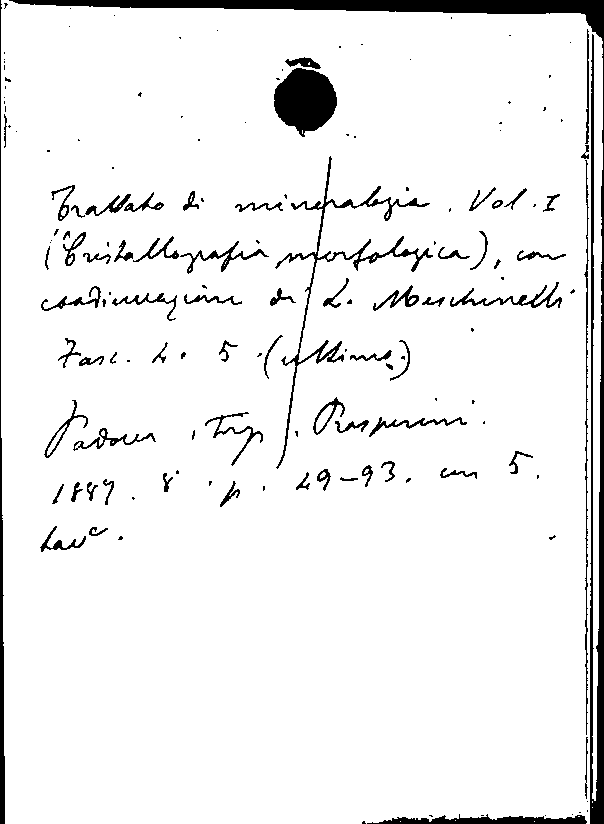 Trattato di mineralogia. Vol. I
(Cristallografia morfologica), con
coadiuvazione di L. Meschinelli
Fasc. 4. 5. (ultimo.)
Padova, Tip. Prosperini.
1887. 8° p. 49-93. con 5.
tavᵉ.